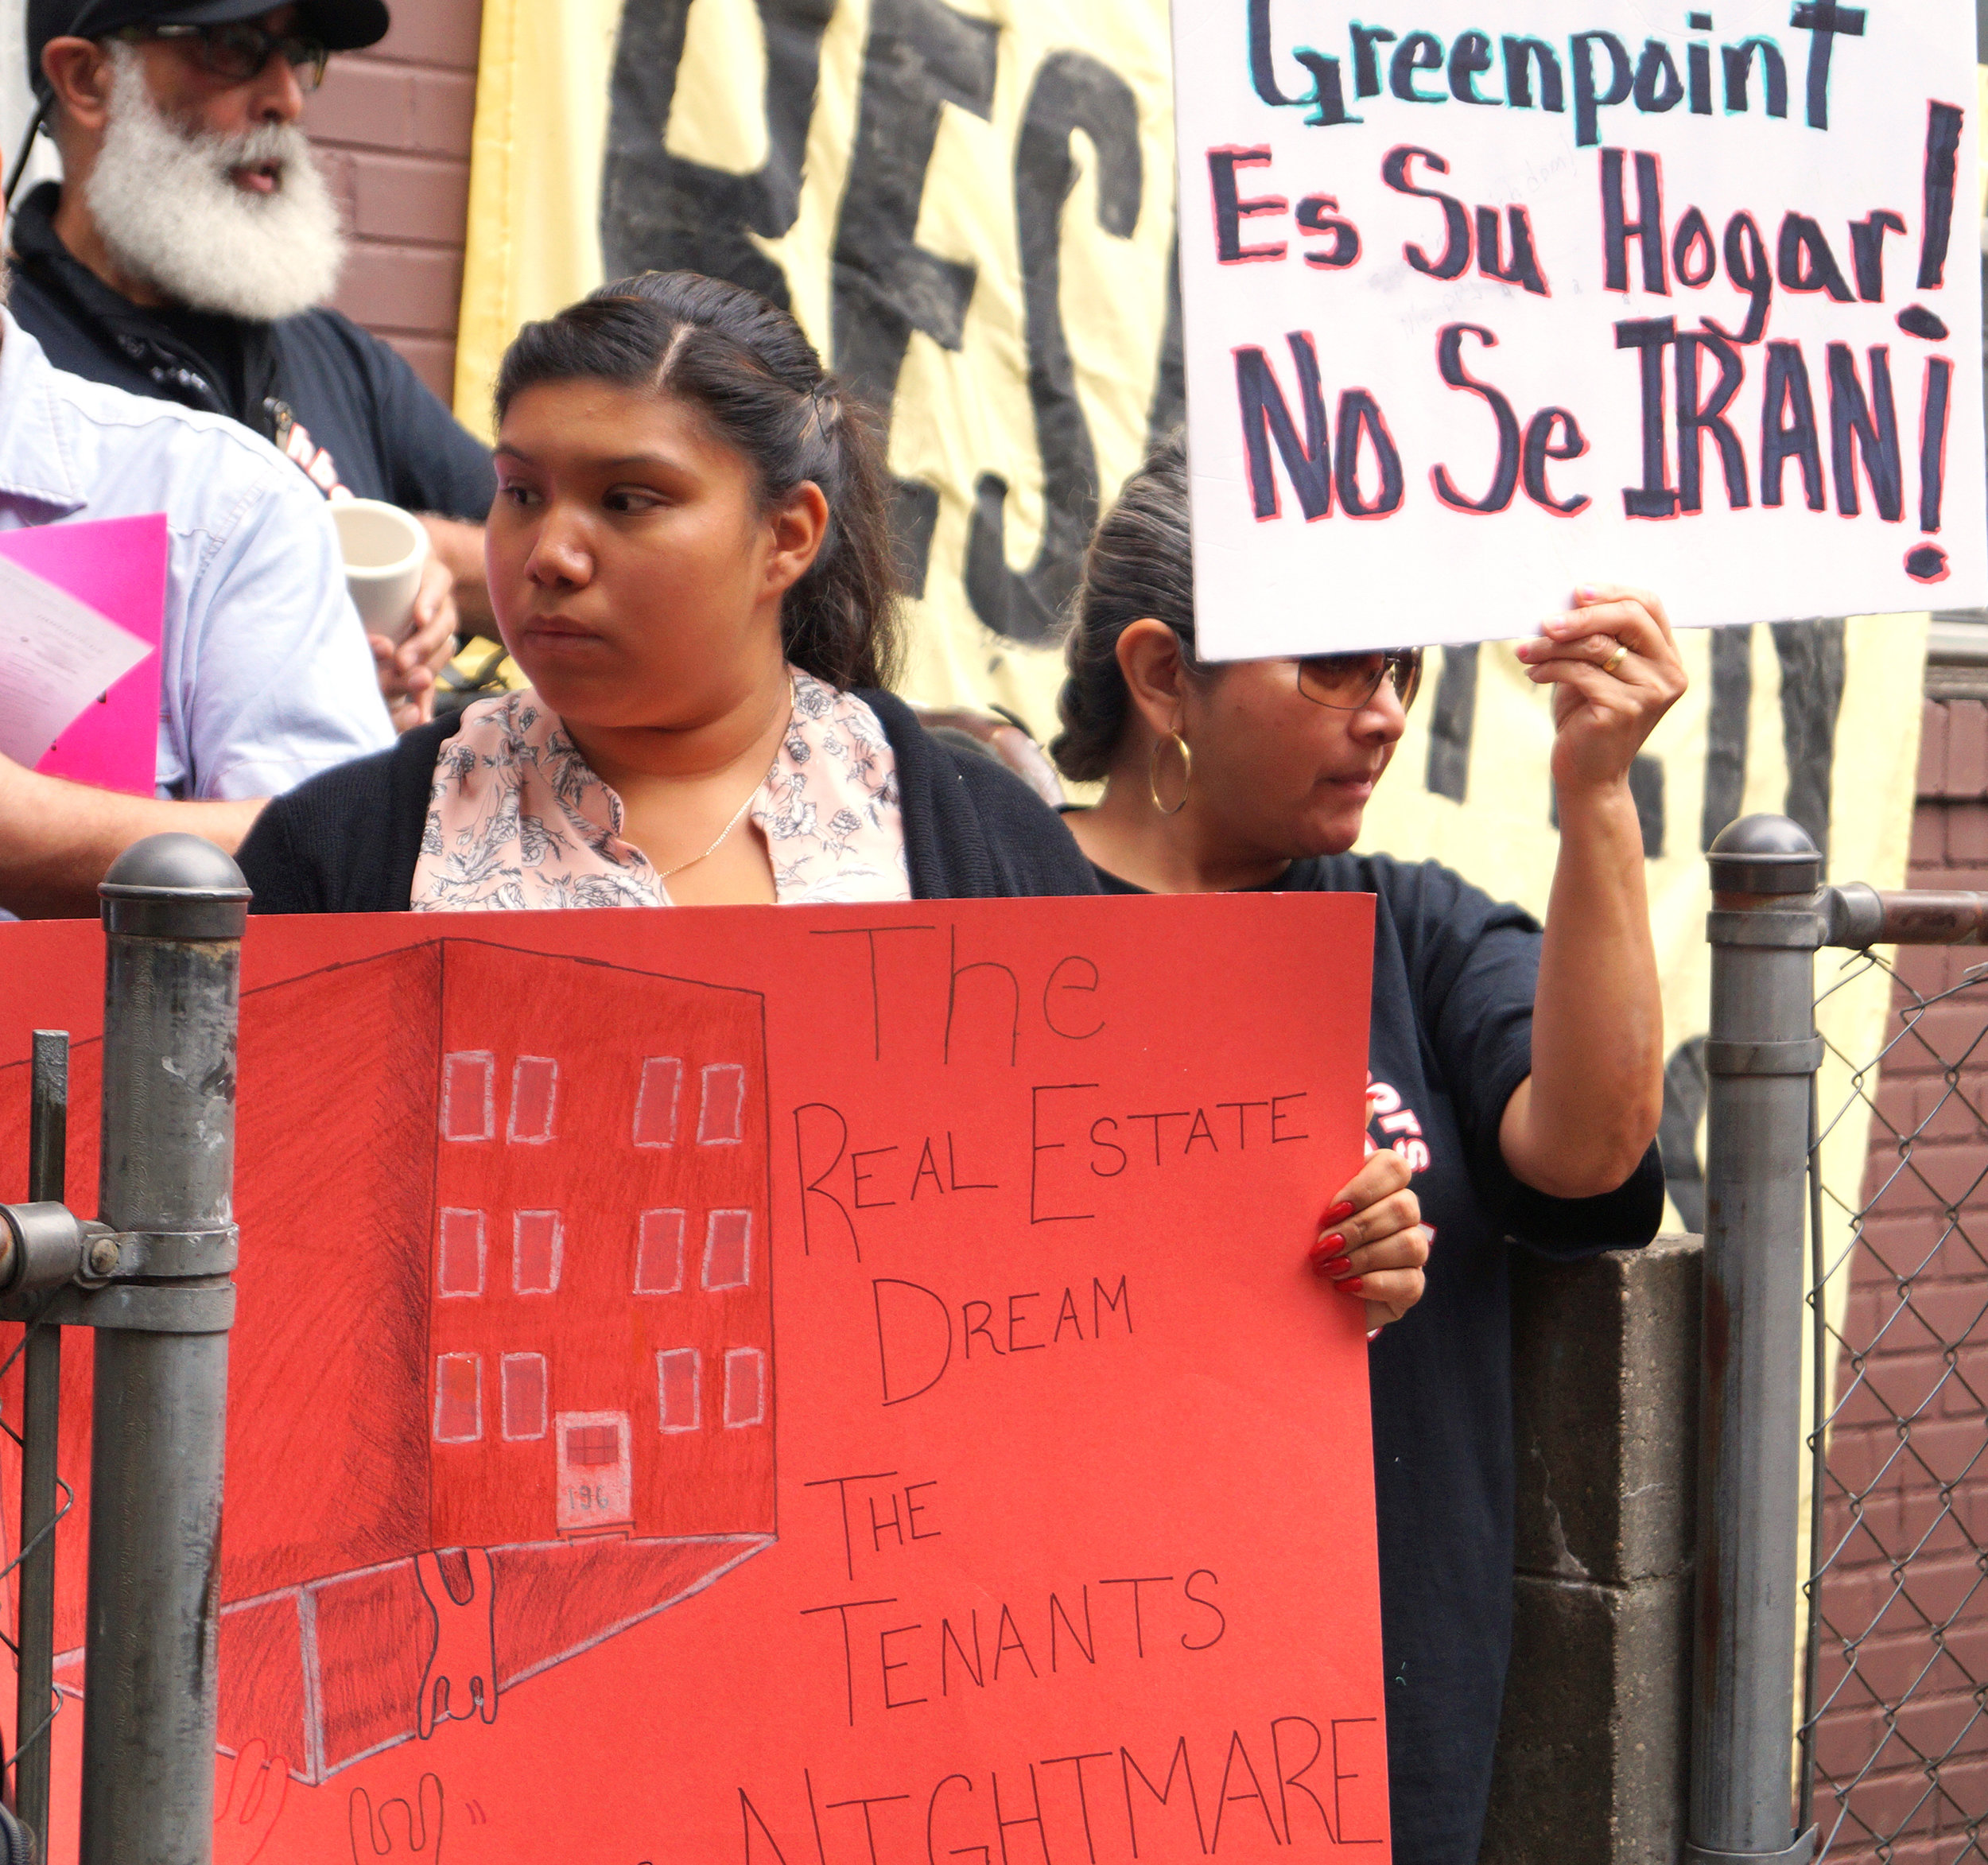 Greenpoint
Es Su Hogar!
No Se IRAN!
The
REAL ESTATE
DREAM
THE
TENANTS
NIGHTMARE
196